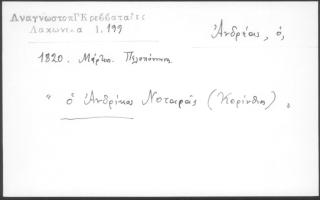 ΑναγνωστοπΓΚρεββαταῖτες
Λακωνικα 1.199
Ἀνδρέας, ὁ,
1820. Μάρτιο. Πελοπόννησο.
"ὁ Ἀνδρίκος Νοταρᾶς (Κορίνθιος)".